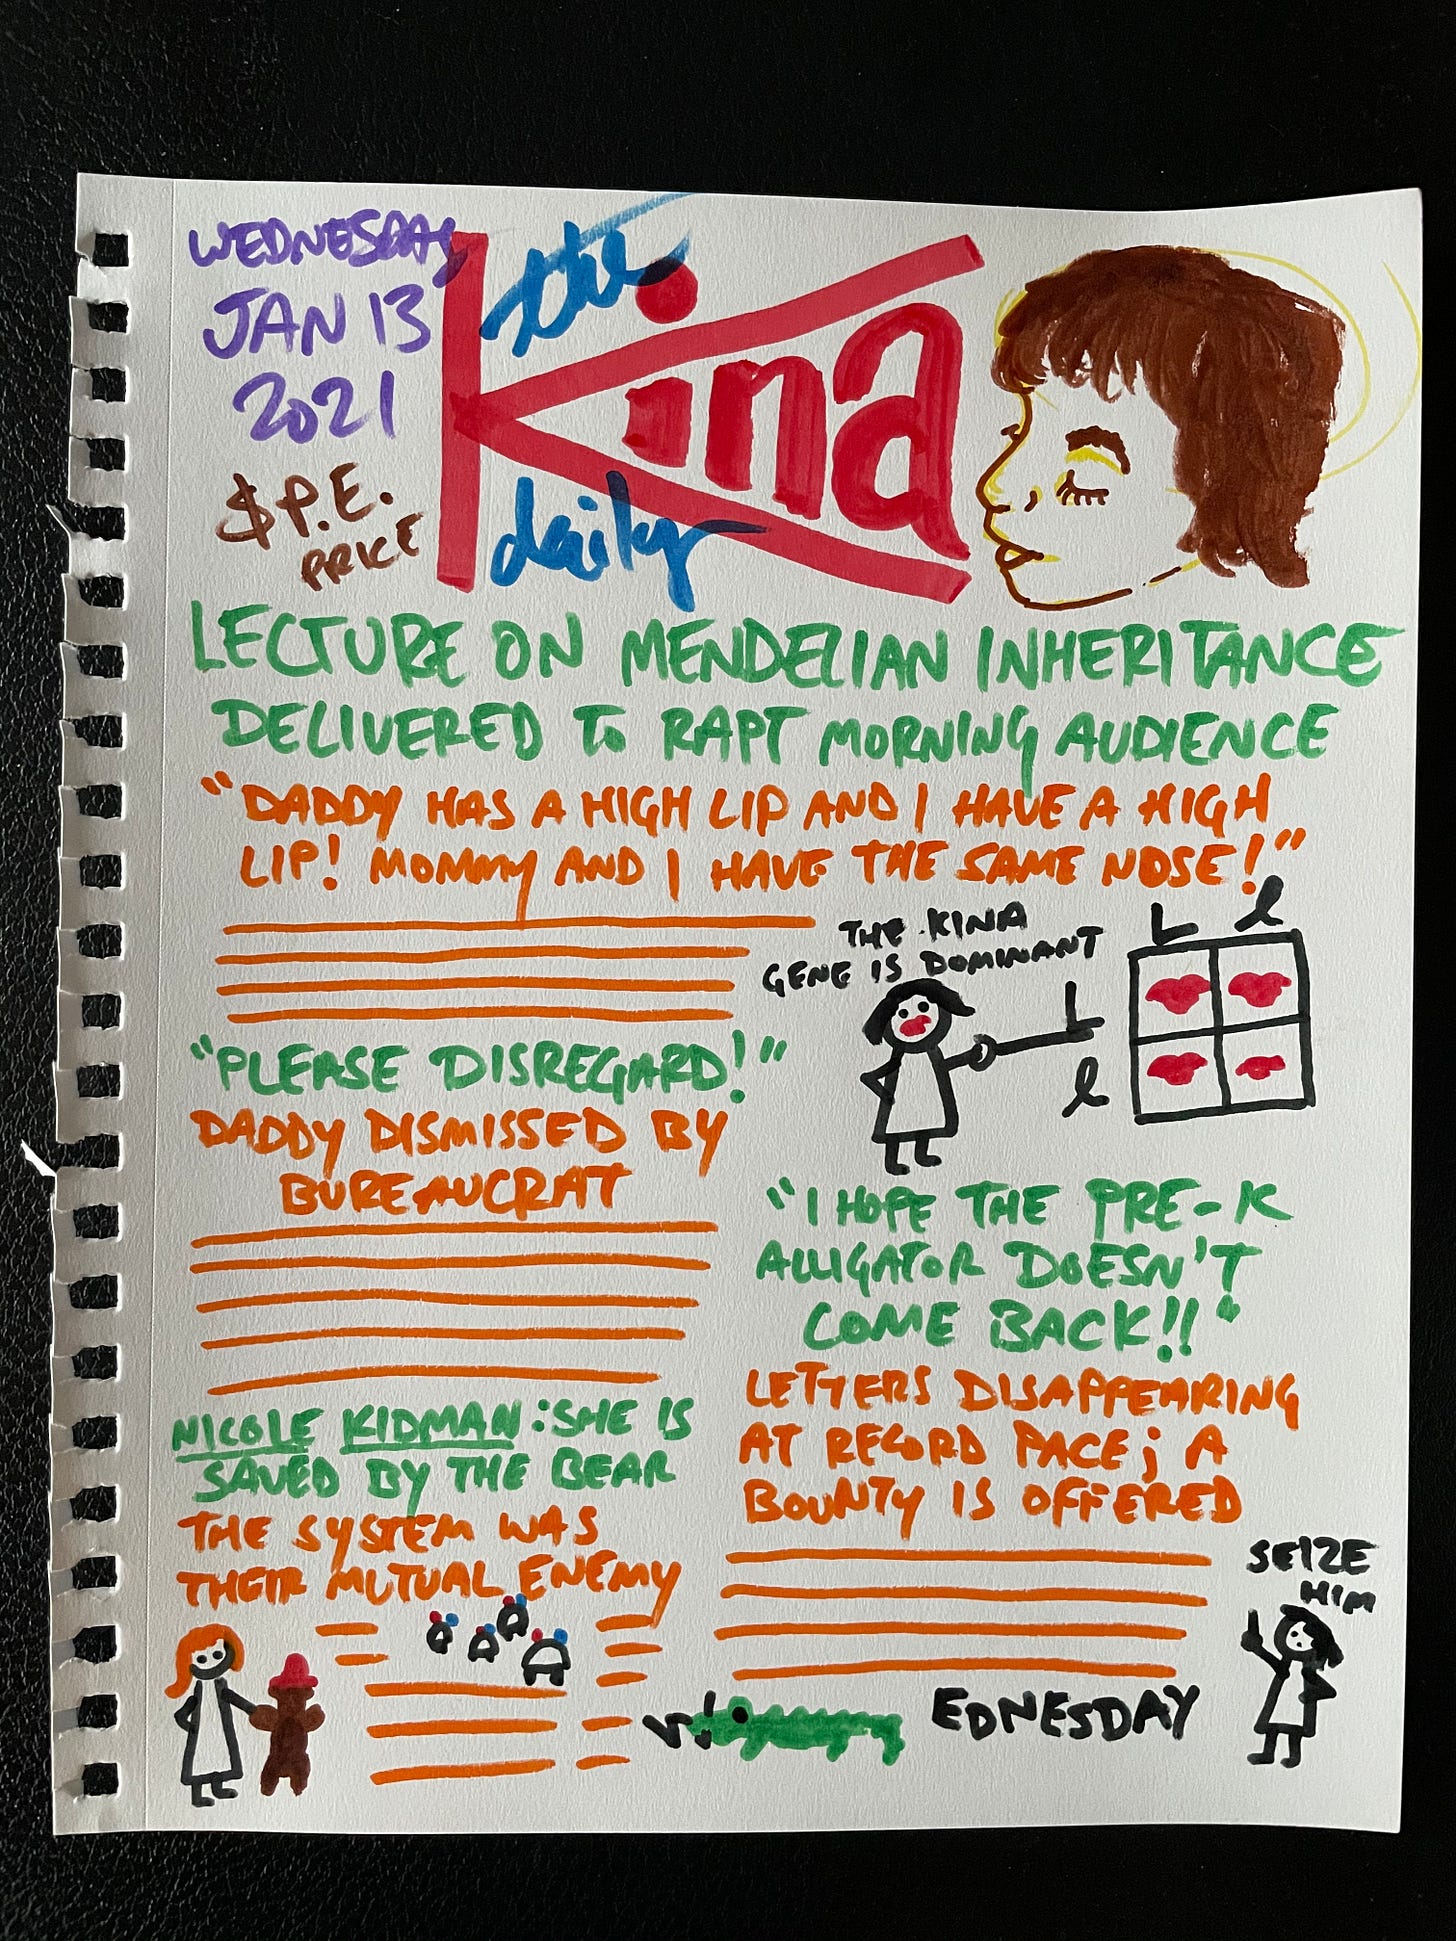 WEDNESDAY
JAN 13
2021
$ P.E.
PRICE
the
Kina
daily
LECTURE ON MENDELIAN INHERITANCE
DELIVERED To RAPT MORNING AUDIENCE
"DADDY HAS A HIGH LIP AND I HAVE A HIGH
LIP! MOMMY AND I HAVE THE SAME NOSE!"
THE KINA
GENE IS DOMINANT
L l
L
l
"PLEASE DISREGARD!"
DADDY DISMISSED BY
BUREAUCRAT
NICOLE KIDMAN: SHE IS
SAVED BY THE BEAR
THE SYSTEM WAS
THEIR MUTUAL ENEMY
"I HOPE THE PRE-K
ALLIGATOR DOESN'T
COME BACK!!"
LETTERS DISAPPEARING
AT RECORD PACE; A
BOUNTY IS OFFERED
SEIZE
HIM
W
EDNESDAY